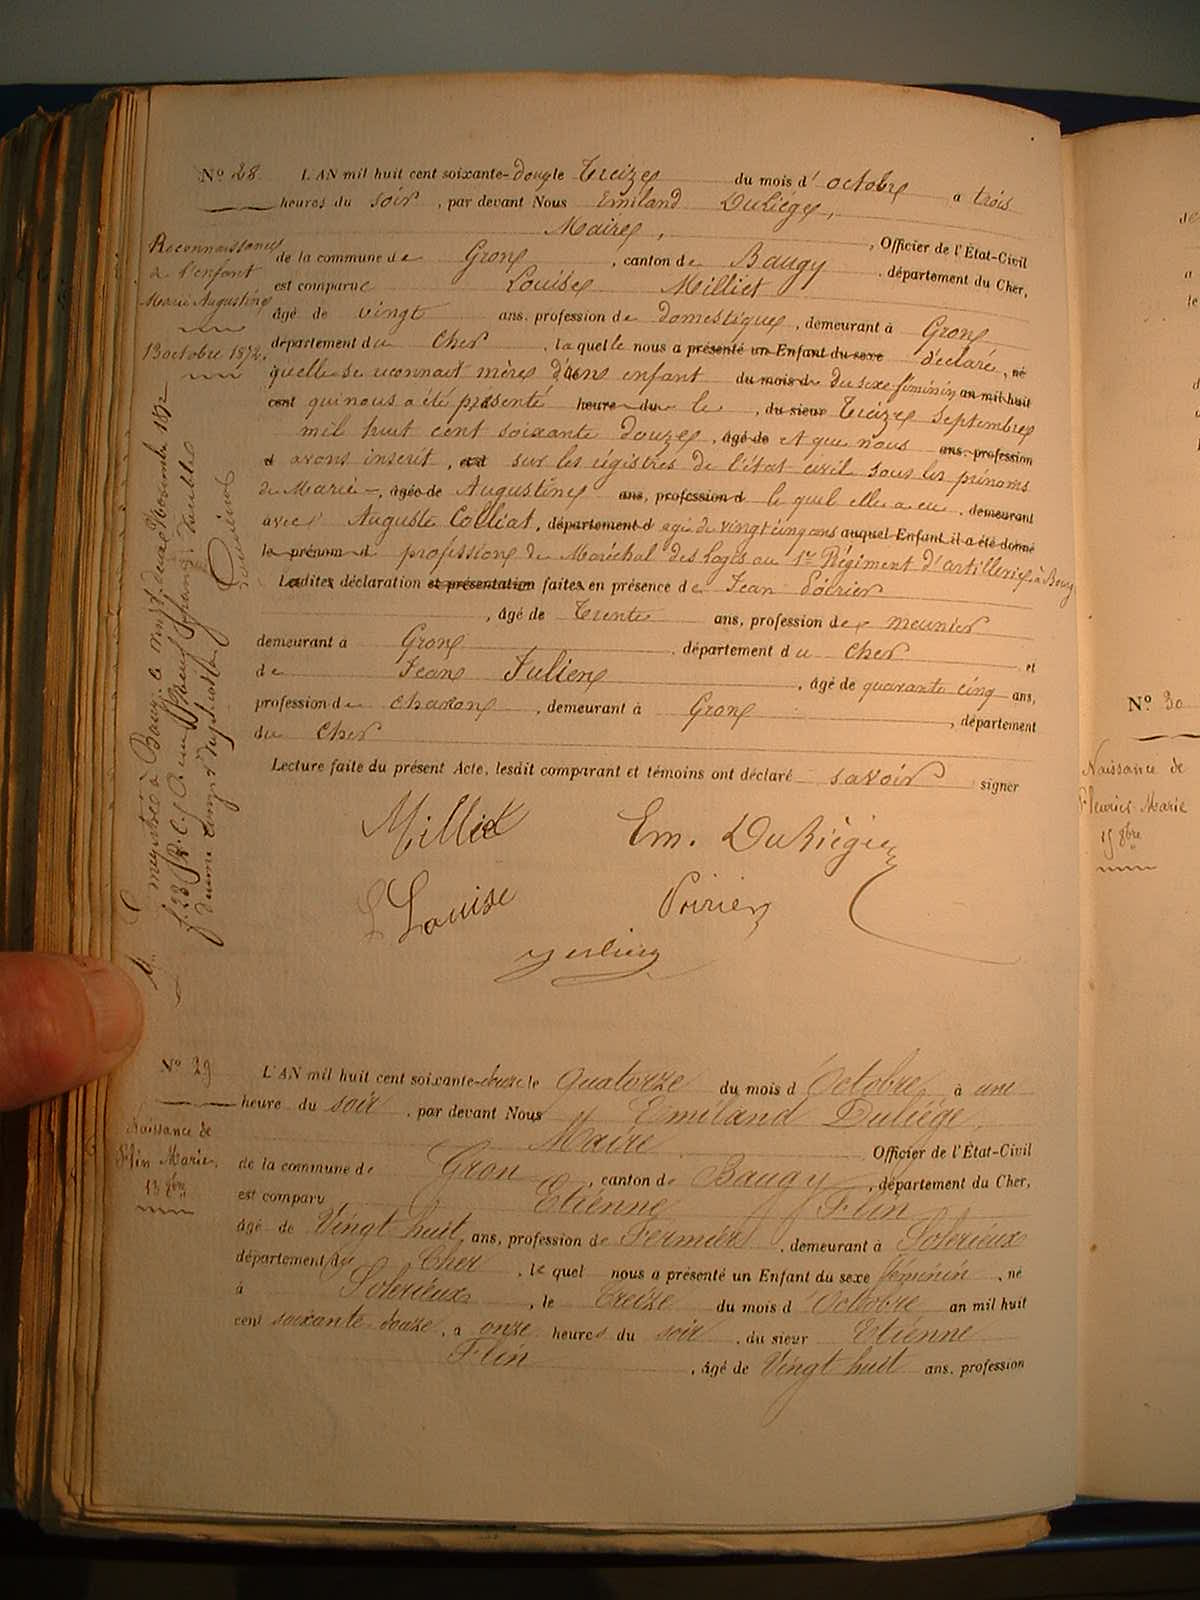 N° 28. L'AN mil huit cent soixante-douze le Treize du mois d' octobre a trois
heures du soir, par devant Nous Emiland Duliége,
Maire, Officier de l'État-Civil
de la commune de Gron, canton de Baugy, département du Cher,
est comparue Louise Milliet
âgé de vingt ans, profession de domestique, demeurant à Gron
département du Cher, laquelle nous a présenté un Enfant du sexe déclaré, né
quelle se reconnait mère d'un enfant du mois de du sexe féminin an mil huit
cent qui nous a été présenté heure du le, du sieur Treize Septembre
mil huit cent soixante douze, âgé de et que nous ans, profession
d avons inscrit, et sur les régistres de l'état civil sous les prénoms
de Marie, âgée de Augustine ans, profession d le quel elle a eu, demeurant
avec Auguste Colliat, département d agé de vingt cinq ans auquel Enfant il a été donné
le prénom d profession de Maréchal des logis au 1er Régiment d'artillerie à Bourg
Ladite déclaration et présentation faites en présence de Jean Poirier
, âgé de Trente ans, profession de meunier
demeurant à Gron département du Cher et
de Jean Julien, âgé de quarante cinq ans,
profession de charon, demeurant à Gron, département
du Cher
Lecture faite du présent Acte, lesdit comparant et témoins ont déclaré savoir signer
Milliet Em. Duliége
L Louise Poirier
Julien
Reconnaissance
de l'enfant
Marie Augustine
13 octobre 1872.
Enregistré à Baugy le vingt deux Novembre 1872
N° 29 L'AN mil huit cent soixante-douze le quatorze du mois d Octobre, à une
heure du soir, par devant Nous Emiland Duliége,
Maire Officier de l'État-Civil
de la commune de Gron, canton de Baugy, département du Cher,
est comparu Etienne Flin
âgé de Vingt huit ans, profession de Fermier, demeurant à Solerieux
département du Cher, le quel nous a présenté un Enfant du sexe féminin, né
à Solerieux, le Treize du mois d Octobre an mil huit
cent soixante douze, a onze heures du soir, du sieur Etienne
Flin, âgé de Vingt huit ans, profession
Naissance de
Flin Marie,
13 8bre
N° 30
Naissance de
Fleurier Marie
15 8bre